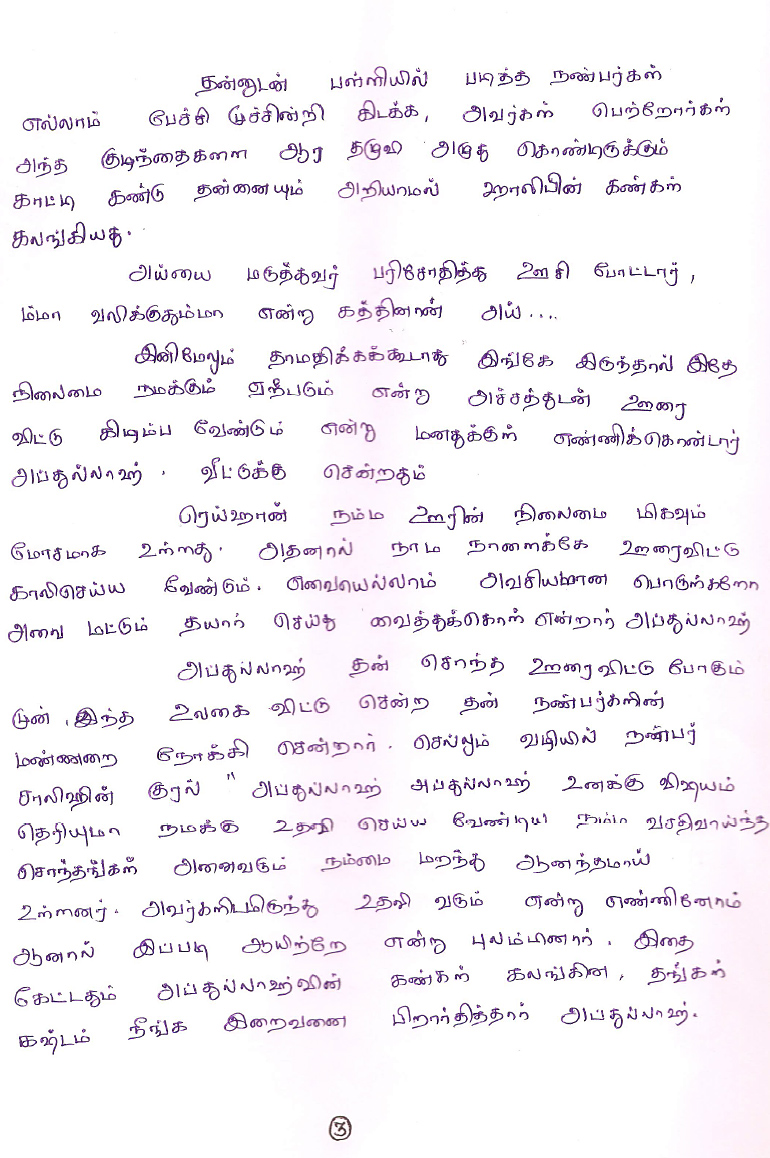 தன்னுடன் பள்ளியில் படித்த நண்பர்கள்
எல்லாம் பேச்சி மூச்சின்றி கிடக்க, அவர்கள் பெற்றோர்கள்
அந்த குழந்தைகளை ஆர தழுவி அழுது கொண்டிருக்கும்
காட்டி கண்டு தன்னையும் அறியாமல் ஹாலிபின் கண்கள்
கலங்கியது.
அய்யை மருத்துவர் பரிசோதித்து ஊசி போட்டார்,
ம்மா வலிக்குதும்மா என்று கத்தினாண் அய்....
இனிமேலும் தாமதிக்கக்கூடாது இங்கே இருந்தால் இதே
நிலைமை நமக்கும் ஏற்படும் என்று அச்சத்துடன் ஊரை
விட்டு கிடிம்ப வேண்டும் என்று மனதுக்குள் எண்ணிக்கொண்டார்
அப்துல்லாஹ். வீட்டுக்கு சென்றதும்
ரெய்ஹான் நம்ம ஊரின் நிலைமை மிகவும்
மோசமாக உள்ளது. அதனால் நாம நாளைக்கே ஊரைவிட்டு
காலிசெய்ய வேண்டும். எவையெல்லாம் அவசியமான பொருள்களோ
அவை மட்டும் தயார் செய்து வைத்துக்கொள் என்றார் அப்துல்லாஹ்
அப்துல்லாஹ் தன் சொந்த ஊரைவிட்டு போகும்
முன், இந்த உலகை விட்டு சென்ற தன் நண்பர்களின்
மண்ணறை நோக்கி சென்றார். செல்லும் வழியில் நண்பர்
சாலிஹின் குரல் " அப்துல்லாஹ் அப்துல்லாஹ் உனக்கு விஷயம்
தெரியுமா நமக்கு உதவி செய்ய வேண்டிய நம்ம வசதிவாய்ந்த
சொந்தங்கள் அனைவரும் நம்மை மறந்து ஆனந்தமாய்
உள்ளனர். அவர்களிடமிருந்து உதவி வரும் என்று எண்ணினோம்
ஆனால் இப்படி ஆயிற்றே என்று புலம்பினார். இதை
கேட்டதும் அப்துல்லாஹ்வின் கண்கள் கலங்கின, தங்கள்
கஷ்டம் நீங்க இறைவனை பிறார்தித்தார் அப்துல்லாஹ்.
3